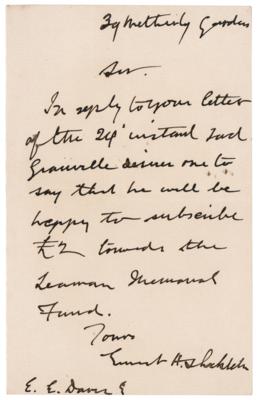 39 Wetherby Gardens
Sir.
In reply to your letter
of the 29th instant Lord
Granville desires me to
say that he will be
happy to subscribe
£2 towards the
Seaman Memorial
Fund.
Yours
Ernest H. Shackleton
E. E. Davis